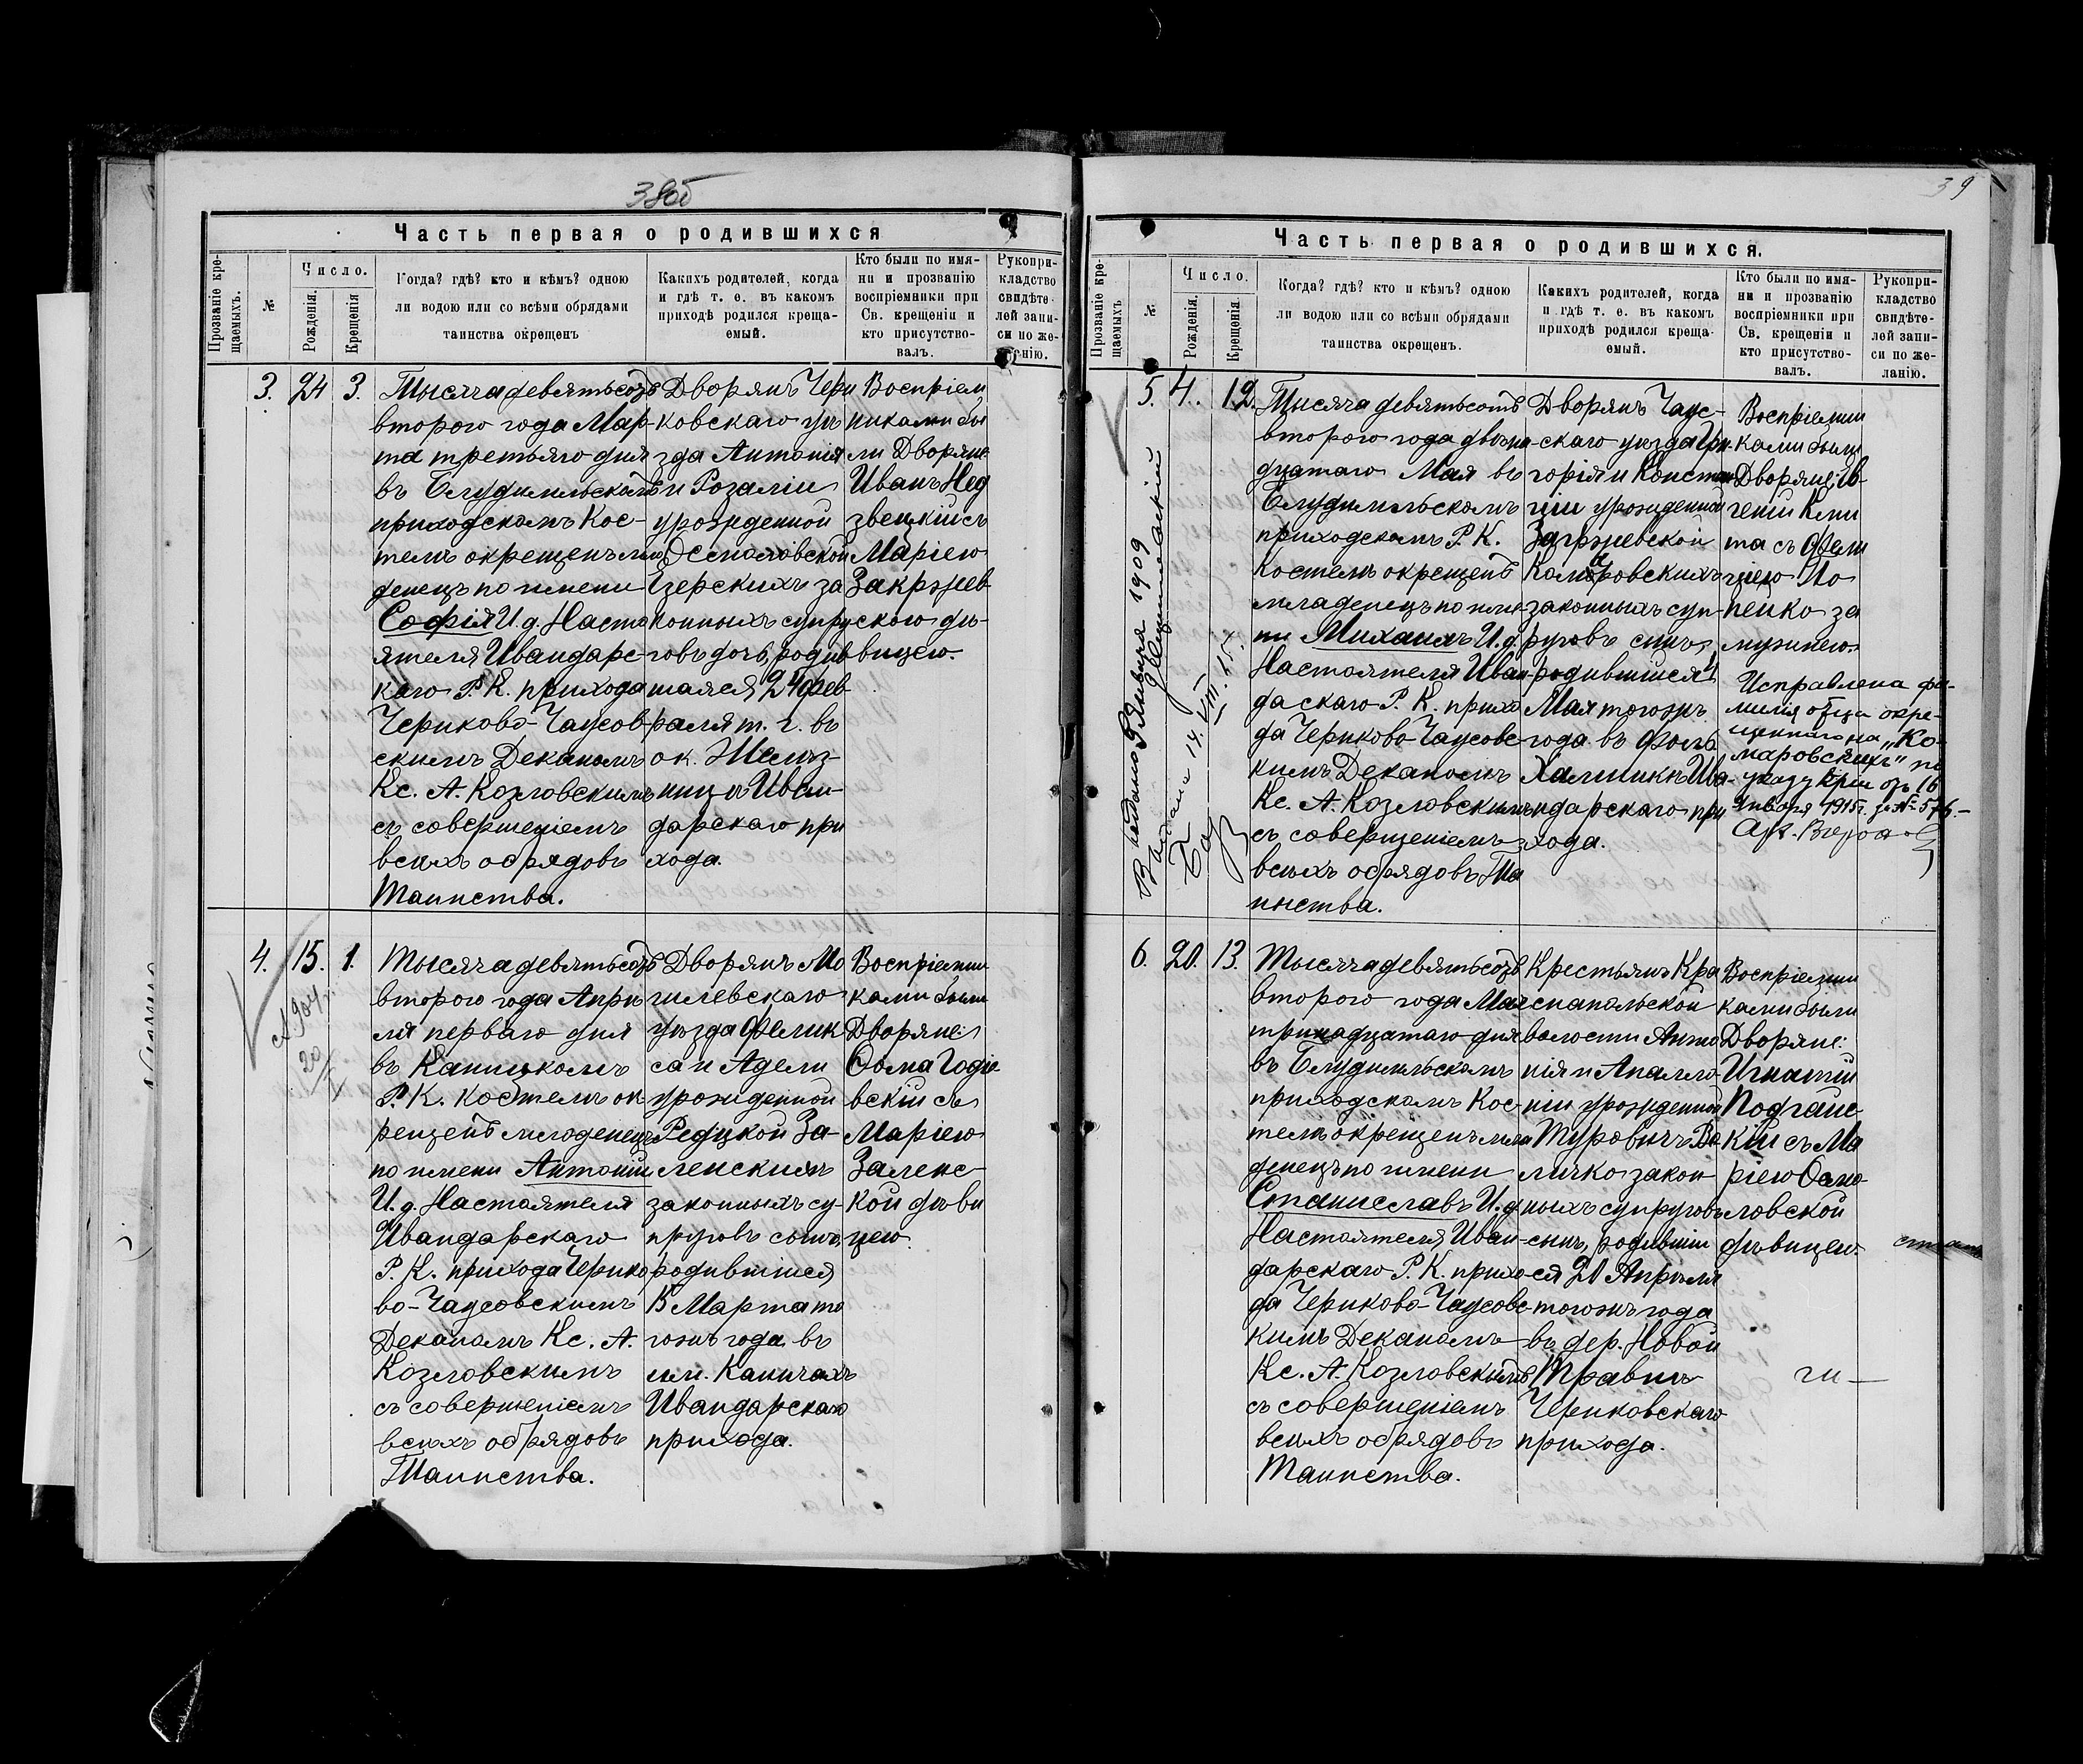 38об
Часть первая о родившихся
Прозваніе кре-
щаемыхъ.
№
Число.
Рожденія.
Крещенія
Когда? гдѣ? кто и кѣмъ? одною
ли водою или со всѣми обрядами
таинства окрещенъ
Какихъ родителей, когда
и гдѣ т. е. въ какомъ
приходѣ родился креща-
емый.
Кто были по имя-
ни и прозванію
воспріемники при
Св. крещеніи и
кто присутство-
валъ.
Рукопри-
кладство
свидѣте-
лей запи-
си по же-
ланію.
3. 24 3.
Тысяча девятьсотъ
второго года Мар-
та третьяго дня
въ Блудимльскомъ
приходскомъ Кос-
телѣ окрещенъ мла
денецъ по имени
Софія И. д. Насто
ятеля Ивандарс-
каго Р. К. прихода
Чериково-Чаусов
скимъ Деканомъ
Кс. А. Козловскимъ
съ совершеніемъ
всѣхъ обрядовъ
Таинства.
Дворянъ Чери
ковскаго уѣ
зда Антонія
и Розаліи
урожденной
Осмоловской
Езерскихъ за
конныхъ супру
говъ дочь, родив
шаяся 24 фев
раля т. г. въ
ок. Желѣз-
ницѣ Иван-
дарскаго при
хода.
Воспріем
никами бы
ли Дворяне
Иванъ Нед
звецкій съ
Маріею
Закржев
скою дѣ-
вицею.
4. 15. 1.
Тысяча девятьсотъ
второго года Апрѣ
ля перваго дня
въ Каничскомъ
Р. К. костелѣ ок
рещенъ младенецъ
по имени Антоній
И. д. Настоятеля
Ивандарскаго
Р. К. прихода Черико
во-Чаусовскимъ
Деканомъ Кс. А.
Козловскимъ
съ совершеніемъ
всѣхъ обрядовъ
Таинства.
Дворянъ Мо
гилевскаго
уѣзда Фелик
са и Адели
урожденной
Редуцкой За-
ленскихъ
законныхъ су-
пруговъ сынъ,
родившійся
15 Марта то
гожъ года въ
им. Каничахъ
Ивандарскаго
прихода.
Воспріемни
ками были
Дворяне:
Фома Годзе
вскій съ
Маріею
Заленс-
кой дѣви
цею.
39
Часть первая о родившихся.
Прозваніе кре-
щаемыхъ
№
Число.
Рожденія.
Крещенія
Когда? гдѣ? кто и кѣмъ? одною
ли водою или со всѣми обрядами
таинства окрещенъ.
Какихъ родителей, когда
и гдѣ т. е. въ какомъ
приходѣ родился креща-
емый.
Кто были по имя-
ни и прозванію
воспріемники при
Св. крещеніи и
кто присутство-
валъ.
Рукопри-
кладство
свидѣте-
лей запи-
си по же-
ланію.
5. 4. 12.
Тысяча девятьсотъ
второго года двѣна-
дцатаго Мая въ
Блудимльскомъ
приходскомъ Р. К.
Костелѣ окрещенъ
младенецъ по име
ни Михаилъ И. д.
Настоятеля Иван-
дарскаго Р. К. прихо
да Чериково-Чаусовс-
кимъ Деканомъ
Кс. А. Козловскимъ
съ совершеніемъ
всѣхъ обрядовъ Таи
нства.
Дворянъ Чаус-
скаго уѣзда Гри-
горія и Констан
ціи урожденной
Загржевской
Комаровскихъ
законныхъ суп-
руговъ сынъ,
родившійся 4
Мая тогожъ
года въ фольв.
Халмикѣ Ива-
ндарскаго при
хода.
Воспріемни
ками были
Дворяне: Ев-
геній Кми
та съ Фели
ціею По
пейко за
мужнею.
Исправлена фа-
милія отца окре-
щеннаго на „Ко-
маровскихъ" по
указу Кріи отъ 16
Января 1915г. за № 576.-
Выдано 1909
Выдано 14.VIII.15.
6. 20. 13.
Тысяча девятьсотъ
второго года Мая
тринадцатаго дня
въ Блудимльскомъ
приходскомъ Кос-
телѣ окрещенъ мла
денецъ по имени
Станиславъ И. д.
Настоятеля Иван-
дарскаго Р. К. прихо
да Чериково-Чаусовс
кимъ Деканомъ
Кс. А. Козловскимъ
съ совершеніемъ
всѣхъ обрядовъ
Таинства.
Крестьянъ Кра
снапольской
волости Анто
нія и Апалло
ніи урожденной
Туровичъ Ве
личко закон
ныхъ супруговъ
сынъ, родивши
ся 20 Апрѣля
тогожъ года
въ дер. Новой
Травнѣ
Чериковскаго
прихода.
Воспріемни
ками были
Дворяне:
Игнатій
Подгайс-
кій съ Ма
ріею Осмо
ловской
дѣвицею.